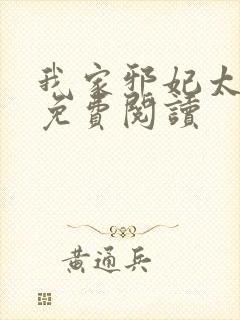 我家邪妃太
免費閱讀
黃通兵